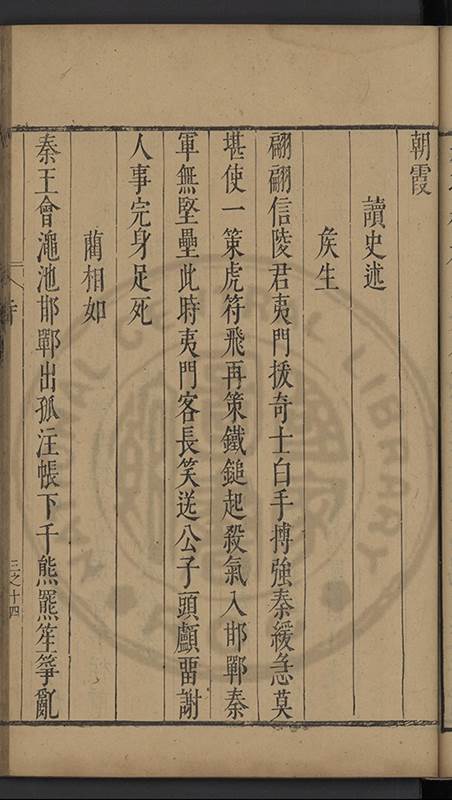 朝霞
讀史述
矦生
翩翩信陵君夷門拔奇士白手搏強秦緩急莫
堪使一策虎符飛再策鐵鎚起殺氣入邯鄲秦
軍無堅壘此時夷門客長笑送公子頭顱畱謝
人事完身足死
藺相如
秦王會澠池邯鄲出孤注帳下千熊羆笙箏亂
三之十四